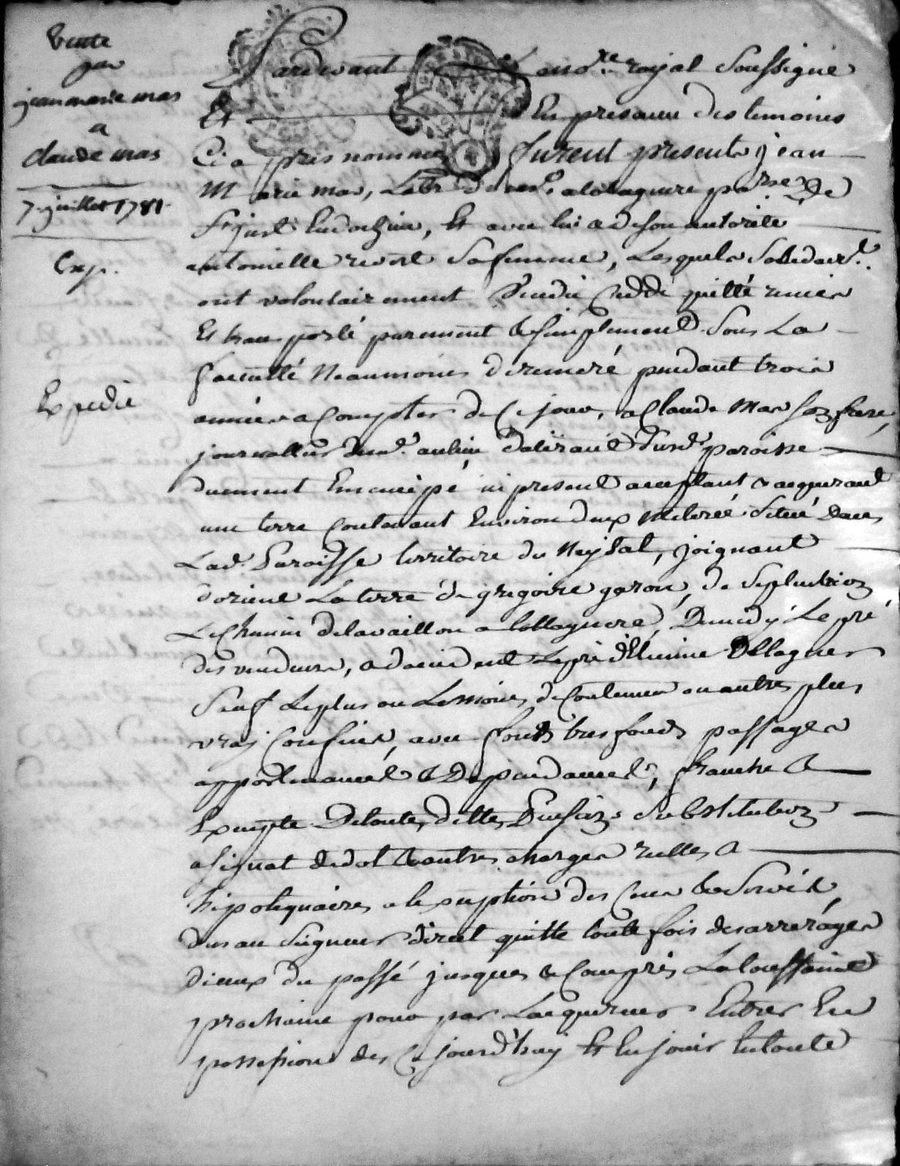 Vente
par
jean marie mas
a
claude mas
7 juillet 1781
Exp.
Expedié
Pardevant Le no.re royal Soussigné
Et En presence des temoins
Cia pres nommes furent presents jean
Marie mas, et demeurant par.sse de
St just Endochin, Et avec lui & de son autorité
antoinette revol Sa femme, Lesquels Solidairt.
ont volontairement Vendu Ceddé quitté remis
Et transporté purement & simplement Sous La
faculté Neaumoins de remeré pendant trois
années a Compter de Ce jour, a Claude Mas son frere,
journallier paroisse
duement Emancipé ici present acceptant & acquerant
une terre Contenant Environ deux Meterés Situé Dans
Lad. Paroisse territoire du joignant
dorient La terre de gregoire garon, de Septentrion
Le Chemin de a Du midy Le pré
des vendeurs, & doccident Le pré d'Etienne
Sauf Le plus ou Le moins de Contenu ou autres plus
vrais Confins, avec fonds tres fonds passages
appartenances & Dependances, franche &
Exempte De toutes dettes, Substitution
assignat de dot & autres charges reelles &
hipotequaires a le exception des Cens & Servis
Dus au Seigneur direct quitte toute fois des arrerages
dieux du passé jusques & Compris La toussaint
prochaine pour par L'acquereur Entrer En
possession des Ce jourd'huy Et En jouir En toute